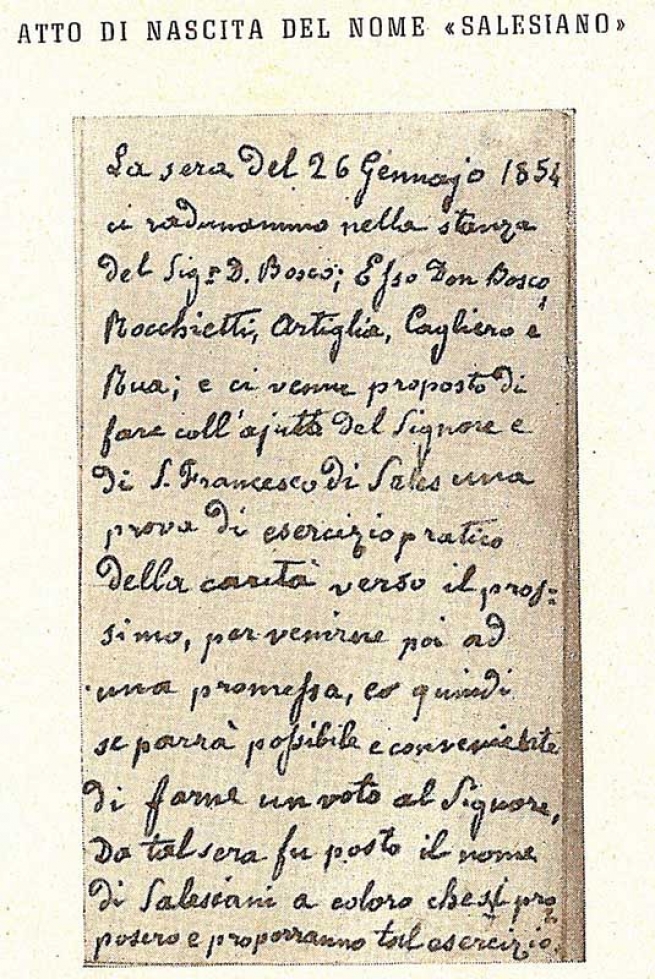 ATTO DI NASCITA DEL NOME «SALESIANO»
La sera del 26 Gennajo 1854
ci radunammo nella stanza
del Sig.r D. Bosco; Esso Don Bosco,
Rocchietti, Artiglia, Cagliero e
Rua; e ci venne proposto di
fare coll'ajuto del Signore e
di S. Francesco di Sales una
prova di esercizio pratico
della carità verso il pros=
simo, per venirne poi ad
una promessa, e quindi
se parrà possibile e conveniente
di farne un voto al Signore,
Da tal sera fu posto il nome
di Salesiani a coloro che si pro
posero e proporranno tal esercizio.